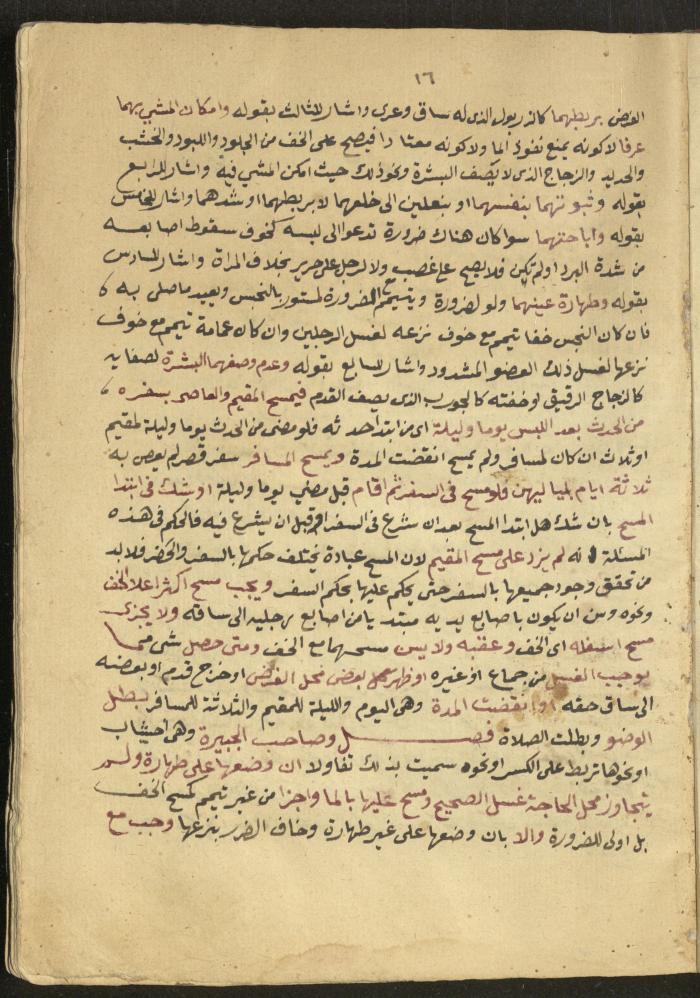 ١٦
الفرض بربطهما كالزربول الذى له ساق وعرى واشار للثالث بقوله وامكان المشي بهما
عرفا لا كونه يمنع نفوذ الما ولا كونه معتادا فيصح على الخف من الجلود واللبود والخشب
والحديد والزجاج الذى لا يصف البشرة ونحو ذلك حيث امكن المشي فيه واشار للرابع
بقوله وثبوتهما بنفسهما او بنعلين الى خلعهما لا بربطهما او شدهما واشار للخامس
بقوله واباحتهما سوا كان هناك ضرورة تدعوا الى لبسه كخوف سقوط اصابعه
من شدة البرد او لم تكن فلا يصح على غصب ولا لرجل على حرير بخلاف المراة واشار للسادس
بقوله وطهارة عينهما ولو لضرورة ويتيمم مع الضرورة لمستور بالنجس ويعيد ما صلى به
فان كان النجس خفا تيمم مع خوف نزعه لغسل الرجلين وان كان عمامة تيمم مع خوف
نزعها لغسل ذلك العضو المشدود واشار للسابع بقوله وعدم وصفهما البشرة لصفايه
كالزجاج الرقيق او خفته كالجورب الذى يصف القدم فيمسح المقيم والعاصى بسفره
من الحدث بعد اللبس يوما وليلة اى من ابتدا حدثه فلو مضى من الحدث يوما وليلة لمقيم
او ثلاث ان كان لمسافر ولم يمسح انقضت المدة ويمسح المسافر سفر قصر لم يعص به
ثلاثة ايام بلياليهن فلو مسح فى السفر ثم اقام قبل مضي يوما وليلة او شك فى ابتدا
المسح بان شك هل ابتدا المسح بعد ان شرع فى السفر او قبل ان يشرع فيه فالحكم فى هذه
المسئلة انه لم يزد على مسح المقيم لان المسح عبادة يختلف حكمها بالسفر والحضر فلا بد
من تحقق وجود جميعها بالسفر حتى يحكم عليها بحكم السفر ويجب مسح اكثر اعلا الخف
ونحوه وسن ان يكون باصابع يديه مبتديا من اصابع رجليه الى ساقه ولا يجزى
مسح اسفله اى الخف وعقبه ولا يسن مسحهما مع الخف ومتى حصل شى مما
يوجب الغسل من جماع او غيره او ظهر بعض محل الفرض او خرج قدم او بعضه
الى ساق خفه او انقضت المدة وهى اليوم والليلة للمقيم والثلاثة للمسافر بطل
الوضو وبطلت الصلاة فصل وصاحب الجبيرة وهى اخشاب
او نحوها تربط على الكسر او نحوه سميت بذلك تفاولا ان وضعها على طهارة ولم
يتجاوز محل الحاجة غسل الصحيح ومسح عليها بالما واجزا من غير تيمم كمسح الخف
بل اولى للضرورة والا بان وضعها على غير طهارة وخاف الضرر بنزعها وجب مع